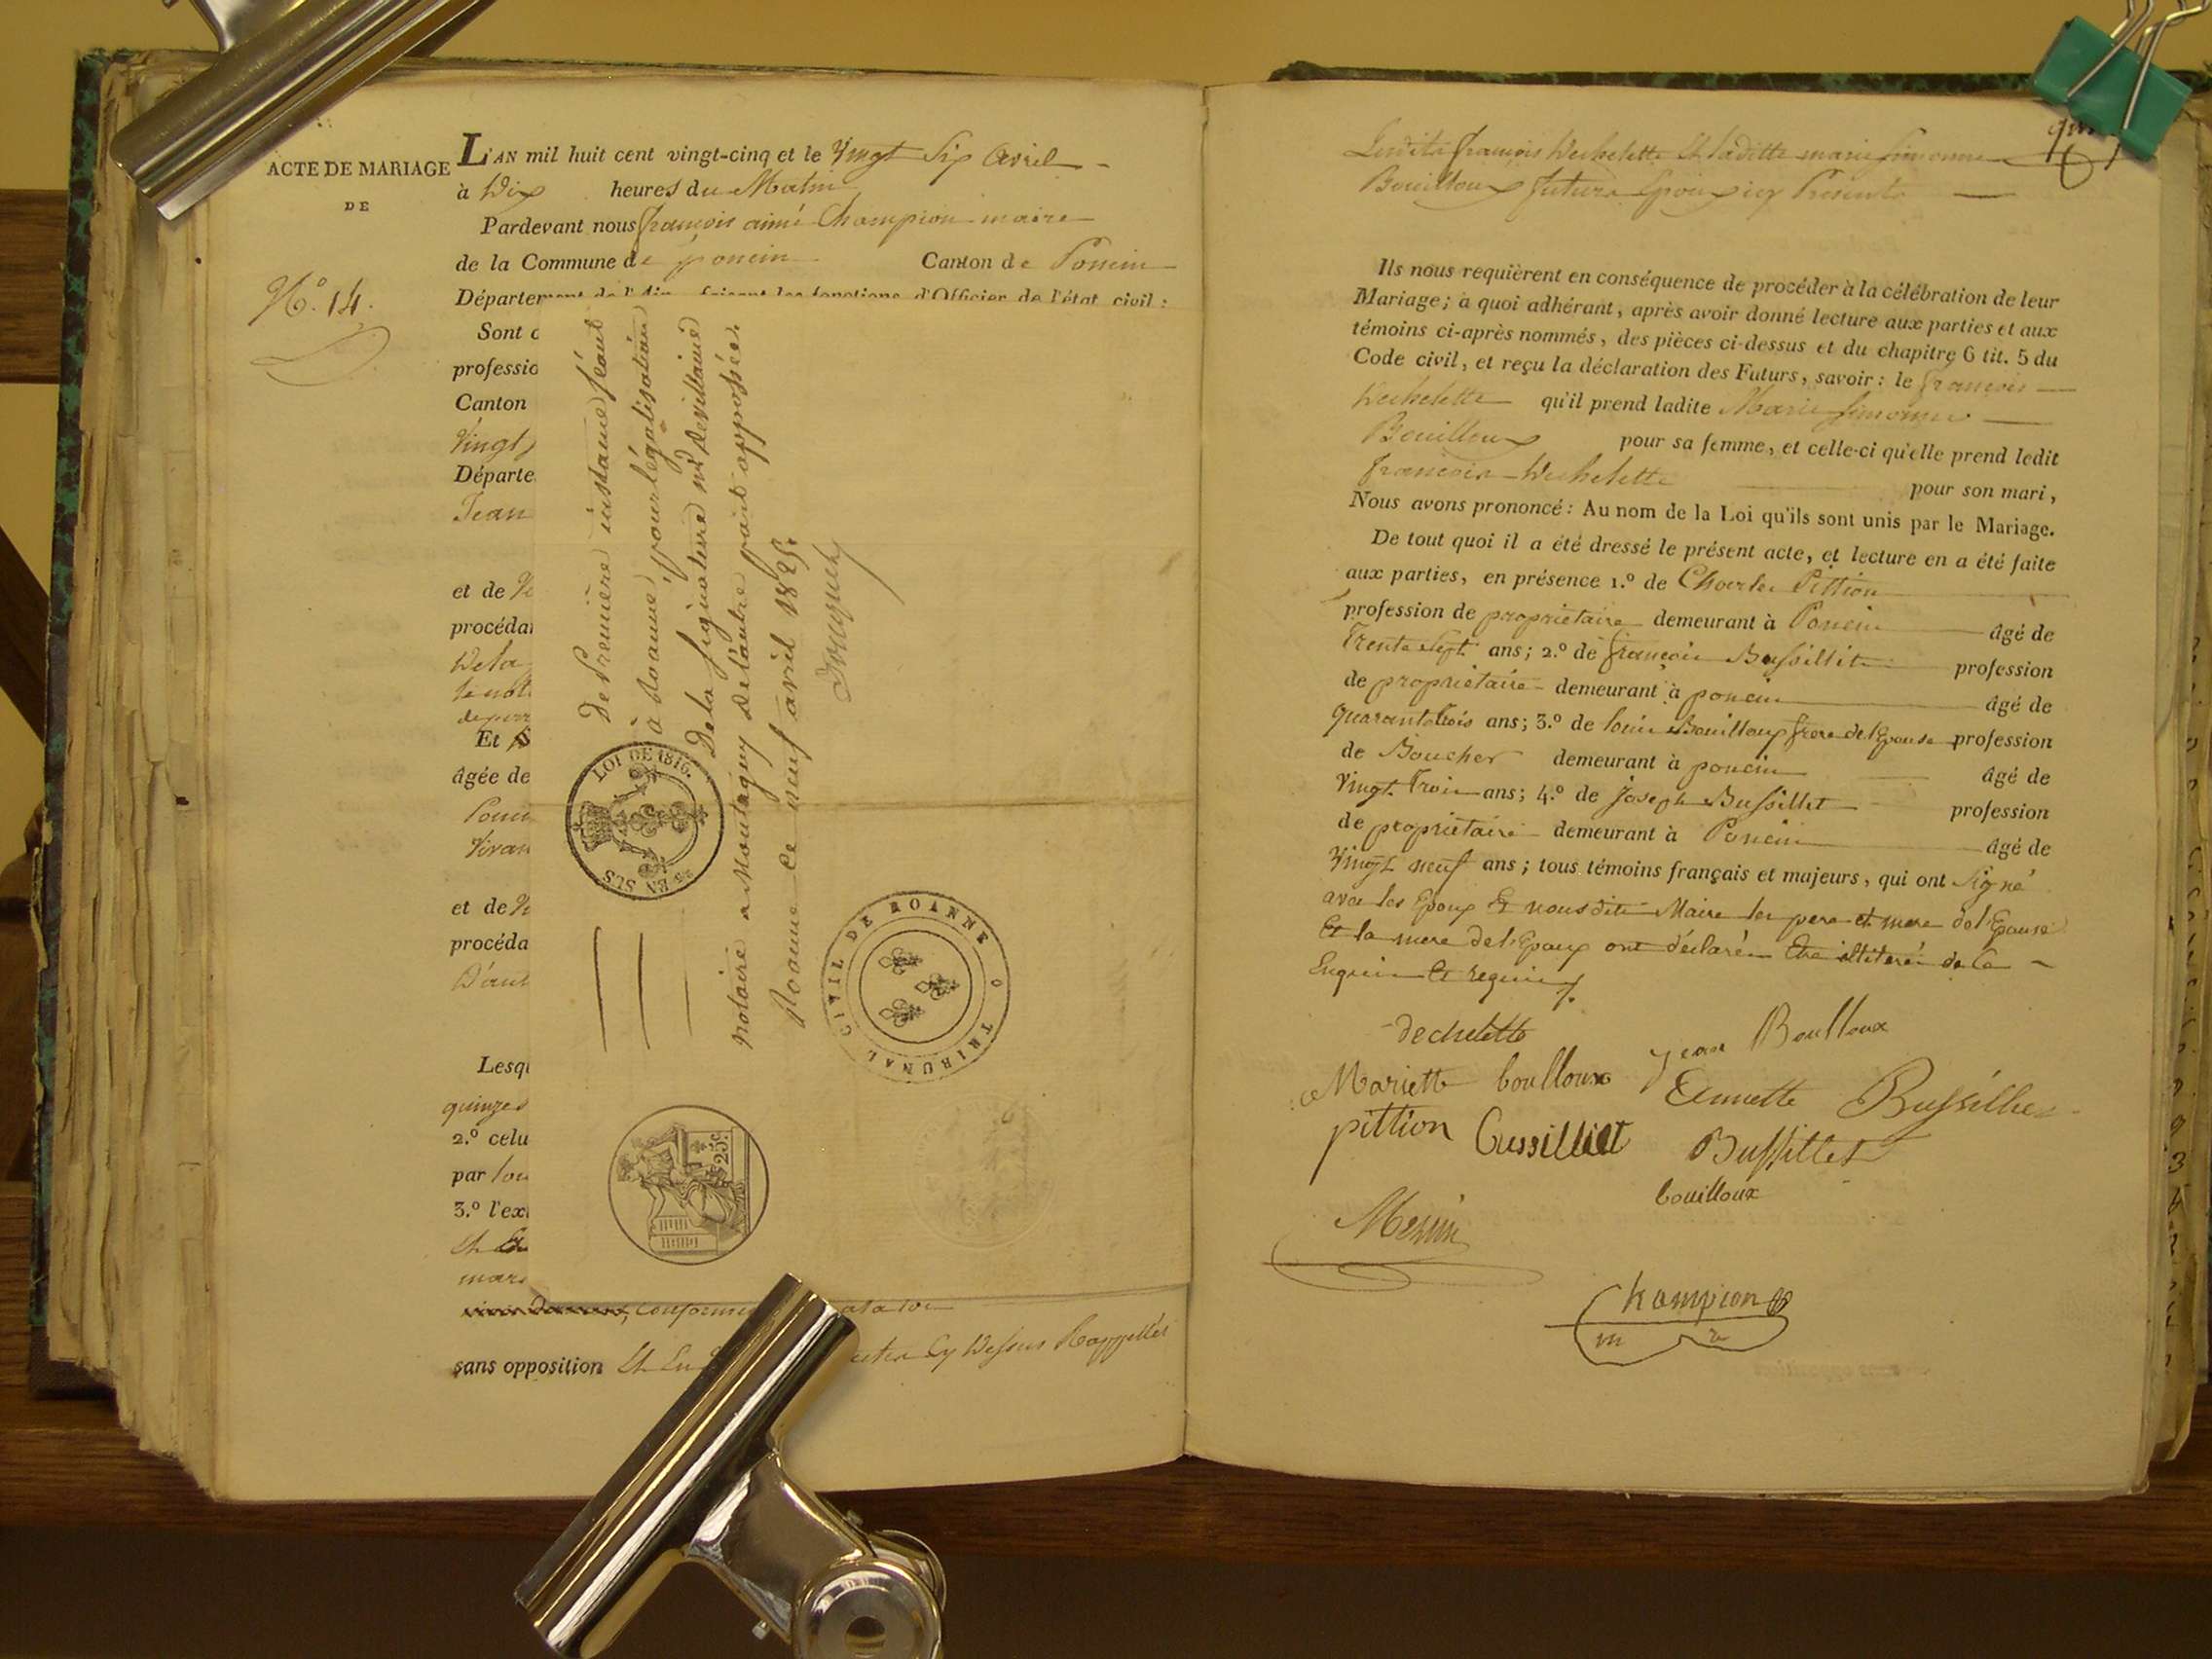 ACTE DE MARIAGE
DE
N.° 14.
L'AN mil huit cent vingt-cinq et le Vingt Six Avril
à Dix heures du Matin
Pardevant nous françois aimé Champion maire
de la Commune de poncin Canton de Poncin
Département de l'Ain, faisant les fonctions d'Officier de l'état civil :
Sont c
professio
Canton
Vingt
Départe
Jean
et de
procédai
Dela
Et
âgée de
Ponci
Vivan
et de
procéda
D'aut
Lesqu
quinze
2.° celu
par lou
3.° l'ex
mars
conformé à la loi
sans opposition Et En Cy Dessus Rappellés
De Première instance séant
à Roanne, pour légalisation
De la signature m.e Desvillaine
notaire a Montagny De l'autre part apposée.
Roanne ce neuf avril 1825.
LOI DE 1816.
EN SUS
TRIBUNAL CIVIL DE ROANNE
25c.
Ledits françois Dechelette Et laditte marie Simonne
Bouilloux future Epoux icy Présents
Ils nous requièrent en conséquence de procéder à la célébration de leur
Mariage; à quoi adhérant, après avoir donné lecture aux parties et aux
témoins ci-après nommés, des pièces ci-dessus et du chapitre 6 tit. 5 du
Code civil, et reçu la déclaration des Futurs, savoir : le françois
Dechelette qu'il prend ladite Marie Simonne
Bouilloux pour sa femme, et celle-ci qu'elle prend ledit
françois Dechelette pour son mari,
Nous avons prononcé : Au nom de la Loi qu'ils sont unis par le Mariage.
De tout quoi il a été dressé le présent acte, et lecture en a été faite
aux parties, en présence 1.° de Charles Pittion
profession de propriétaire demeurant à Poncin âgé de
Trente Sept ans; 2.° de françois Bussillet profession
de propriétaire demeurant à poncin âgé de
quarante trois ans; 3.° de louis Bouilloux frere de l'Epouse profession
de Boucher demeurant à poncin âgé de
Vingt Trois ans; 4.° de Joseph Bussillet profession
de propriétaire demeurant à Poncin âgé de
Vingt neuf ans; tous témoins français et majeurs, qui ont Signé
avec les Epoux Et nous dits Maire les pere et mere de l'Epouse
Et la mere de l'Epoux ont déclarés Etre illiterés de Ce
Enquis Et requis
dechelette
jean Boulloux
Mariette boulloux
Annette Bussillet
pittion
Bussilliet
Bussillet
bouilloux
Messin
Champion
m re